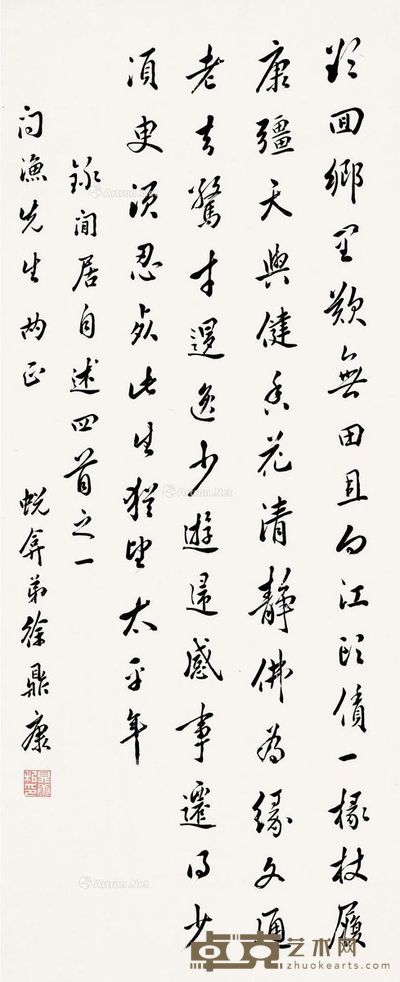 欲回鄉里歎無田且向江頭債一椽杖履
康彊天與健香花清靜佛為緣文通
老去驚才退逸少遊歸感事遷得少
須臾須忍死此生猶望太平年
録閒居自述四首之一
問漁先生兩正 蜕弇弟徐鼎康
Artron.Net
Artron.Net
Artron.Net
卓克艺术网
zhuokearts.com